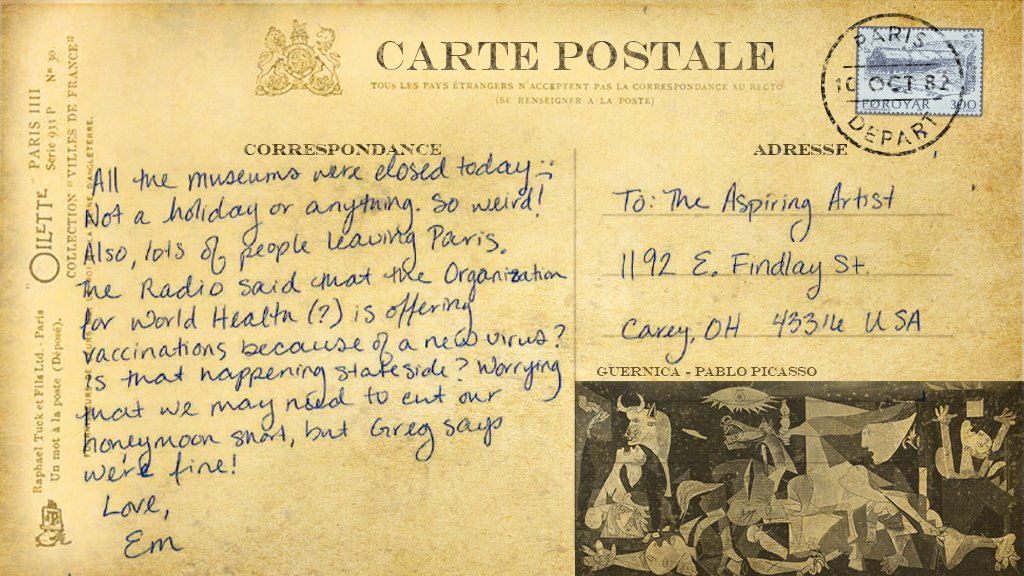 CARTE POSTALE
TOUS LES PAYS ÉTRANGERS N'ACCEPTENT PAS LA CORRESPONDANCE AU RECTO
(SE RENSEIGNER A LA POSTE)
PARIS
10 OCT 82
DEPART
FØROYAR 300
CORRESPONDANCE
All the museums were closed today :
Not a holiday or anything. So weird!
Also, lots of people leaving Paris.
The Radio said that the Organization
for World Health (?) is offering
vaccinations because of a new virus?
Is that happening stateside? Worrying
that we may need to cut our
honeymoon short, but Greg says
we're fine!
Love,
Em
ADRESSE
To: The Aspiring Artist
1192 E. Findlay St.
Carey, OH 43316 USA
GUERNICA - PABLO PICASSO
Raphael Tuck et Fils Ltd. - Paris
Un mot à la poste (Déposé).
OILETTE" PARIS IIII
Serie 933 P No 30
COLLECTION "VILLES DE FRANCE"
ANGLETERRE.